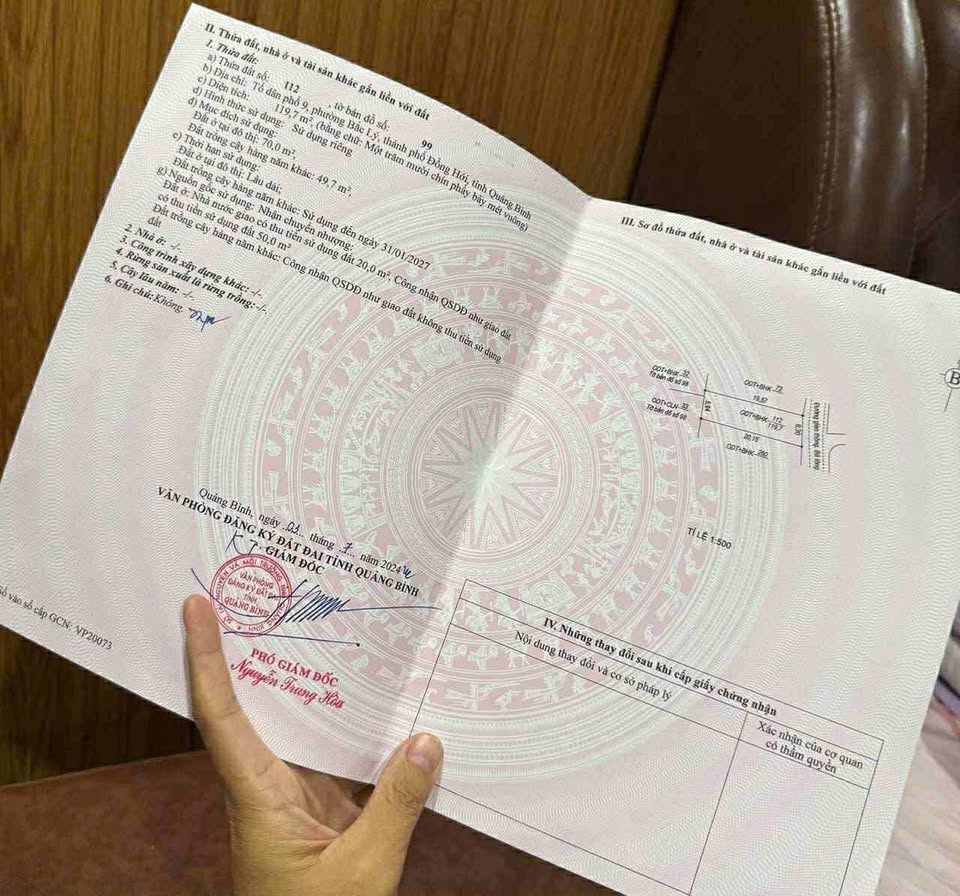 II. Thửa đất, nhà ở và tài sản khác gắn liền với đất
1. Thửa đất:
a) Thửa đất số: 112 , tờ bản đồ số: 99
b) Địa chỉ: Tổ dân phố 9, phường Bắc Lý, thành phố Đồng Hới, tỉnh Quảng Bình
c) Diện tích: 119,7 m², (bằng chữ: Một trăm mười chín phảy bảy mét vuông)
d) Hình thức sử dụng: Sử dụng riêng
đ) Mục đích sử dụng:
Đất ở tại đô thị: 70,0 m²,
Đất trồng cây hàng năm khác: 49,7 m²,
e) Thời hạn sử dụng:
Đất ở tại đô thị: Lâu dài;
Đất trồng cây hàng năm khác: Sử dụng đến ngày 31/01/2027
g) Nguồn gốc sử dụng: Nhận chuyển nhượng:
Đất ở: Nhà nước giao có thu tiền sử dụng đất 20,0 m², Công nhận QSDĐ như giao đất
có thu tiền sử dụng đất 50,0 m²
Đất trồng cây hàng năm khác: Công nhận QSDĐ như giao đất không thu tiền sử dụng
đất
2. Nhà ở: -/-.
3. Công trình xây dựng khác: -/-.
4. Rừng sản xuất là rừng trồng: -/-.
5. Cây lâu năm: -/-.
6. Ghi chú: Không.
Quảng Bình, ngày 01 tháng 7 năm 2024
VĂN PHÒNG ĐĂNG KÝ ĐẤT ĐAI TỈNH QUẢNG BÌNH
KT. GIÁM ĐỐC
VĂN PHÒNG
ĐĂNG KÝ ĐẤT
TỈNH
QUẢNG BÌNH
PHÓ GIÁM ĐỐC
Nguyễn Trung Hòa
Số vào sổ cấp GCN: VP20073
III. Sơ đồ thửa đất, nhà ở và tài sản khác gắn liền với đất
B
ODT+BHK 32
Tờ bản đồ số 98
ODT+BHK 72
19,57
ODT+CLN 33
Tờ bản đồ số 98
5,94
ODT+BHK 112
119,7
6,30
20,15
ODT+BHK 292
Đường giao thông, Bê tông
TỈ LỆ 1:500
IV. Những thay đổi sau khi cấp giấy chứng nhận
Nội dung thay đổi và cơ sở pháp lý
Xác nhận của cơ quan
có thẩm quyền